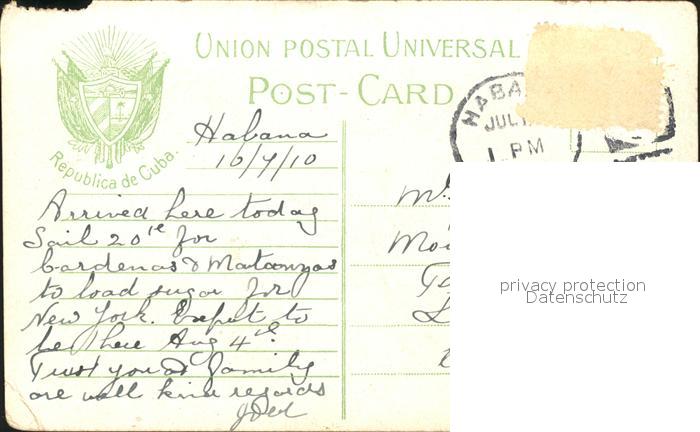 UNION POSTAL UNIVERSAL
POST-CARD
Republica de Cuba.
HABA
JUL
1 PM
Habana
16/7/10
Arrived here today
Sail 20th for
Cardenas & Matanzas
to load sugar for
New York. Expect to
be there Aug 4th.
Trust you & family
are well kind regards
privacy protection
Datenschutz